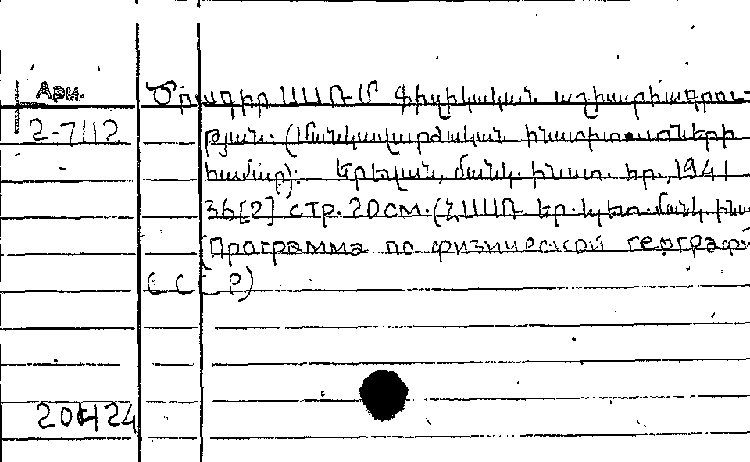 Арм. Ծրագիր ՍՍՌՄ ֆիզիկական աշխարհագրու-
2-7112 թյան. (Մանկավարժական ինստիտուտների
համար): Երևան, մանկ. ինստ. հր., 1941
36[2] стр. 20см. (ՀՍՍՌ. Եր. պետ. մանկ. ինս
[Программа по физической географ
СССР)
20424